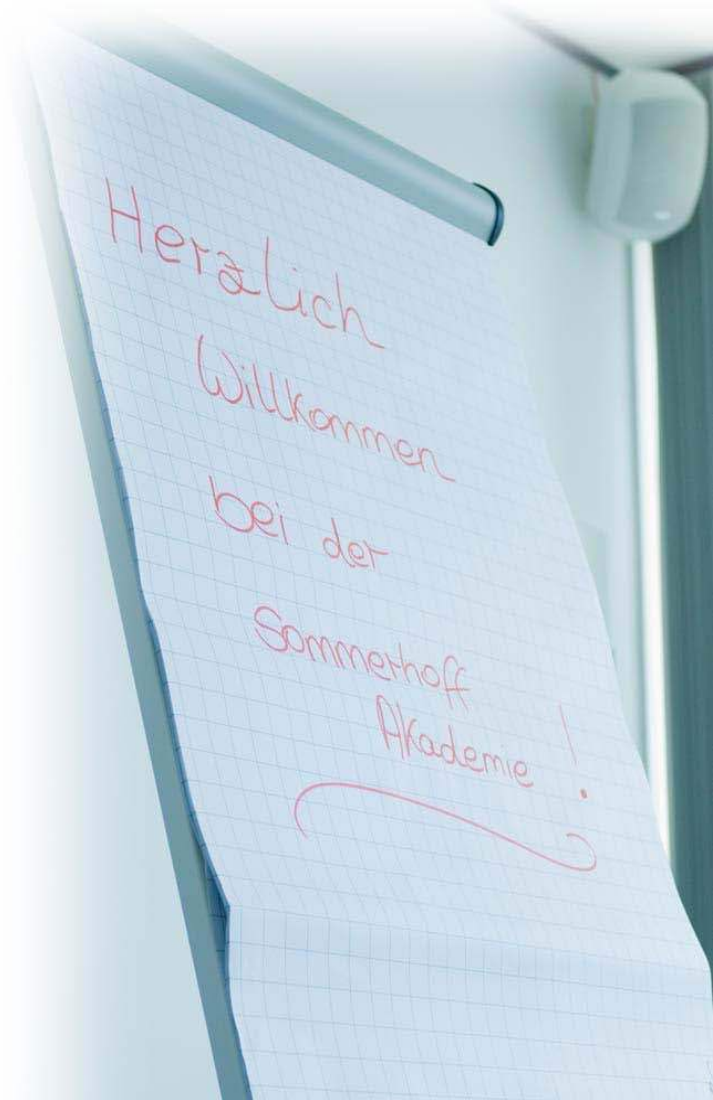 Herzlich
Willkommen
bei der
Sommerhoff
Akademie!